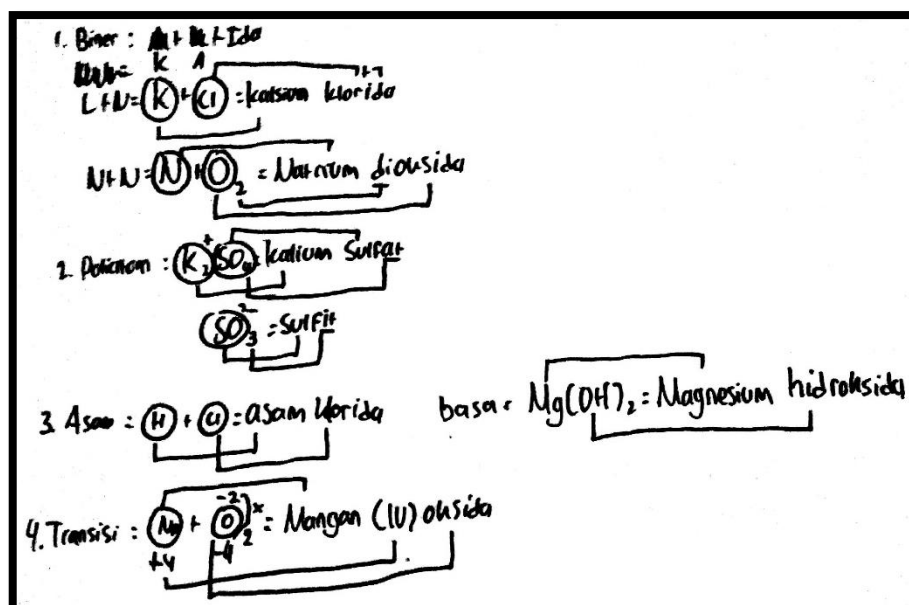 1. Biner : + + Ida
K A
L+N= K + Cl = kalsium klorida
N+N = N + O2 = Natrium dioksida
2. Poliatom : K2+ SO4 = kalium Sulfat
SO3 2- = Sulfit
3. Asam = H + Cl = asam klorida
basa = Mg(OH)2 = Magnesium hidroksida
4. Transisi : Mn + O2 -2 x = Mangan (IV) oksida
+4 -4